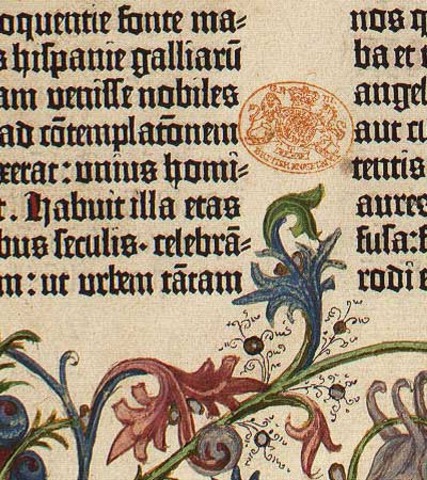 oquentie fonte ma=
s hispanie galliarū
am venisse nobiles
ad cōtemplatōnem
xerat: unius homi=
t. Habuit illa etas
bus seculis· celebrā=
m: ut urbem tātam
nos q
ba et
angel
aut
tentis
aures
fusa:
rodi e